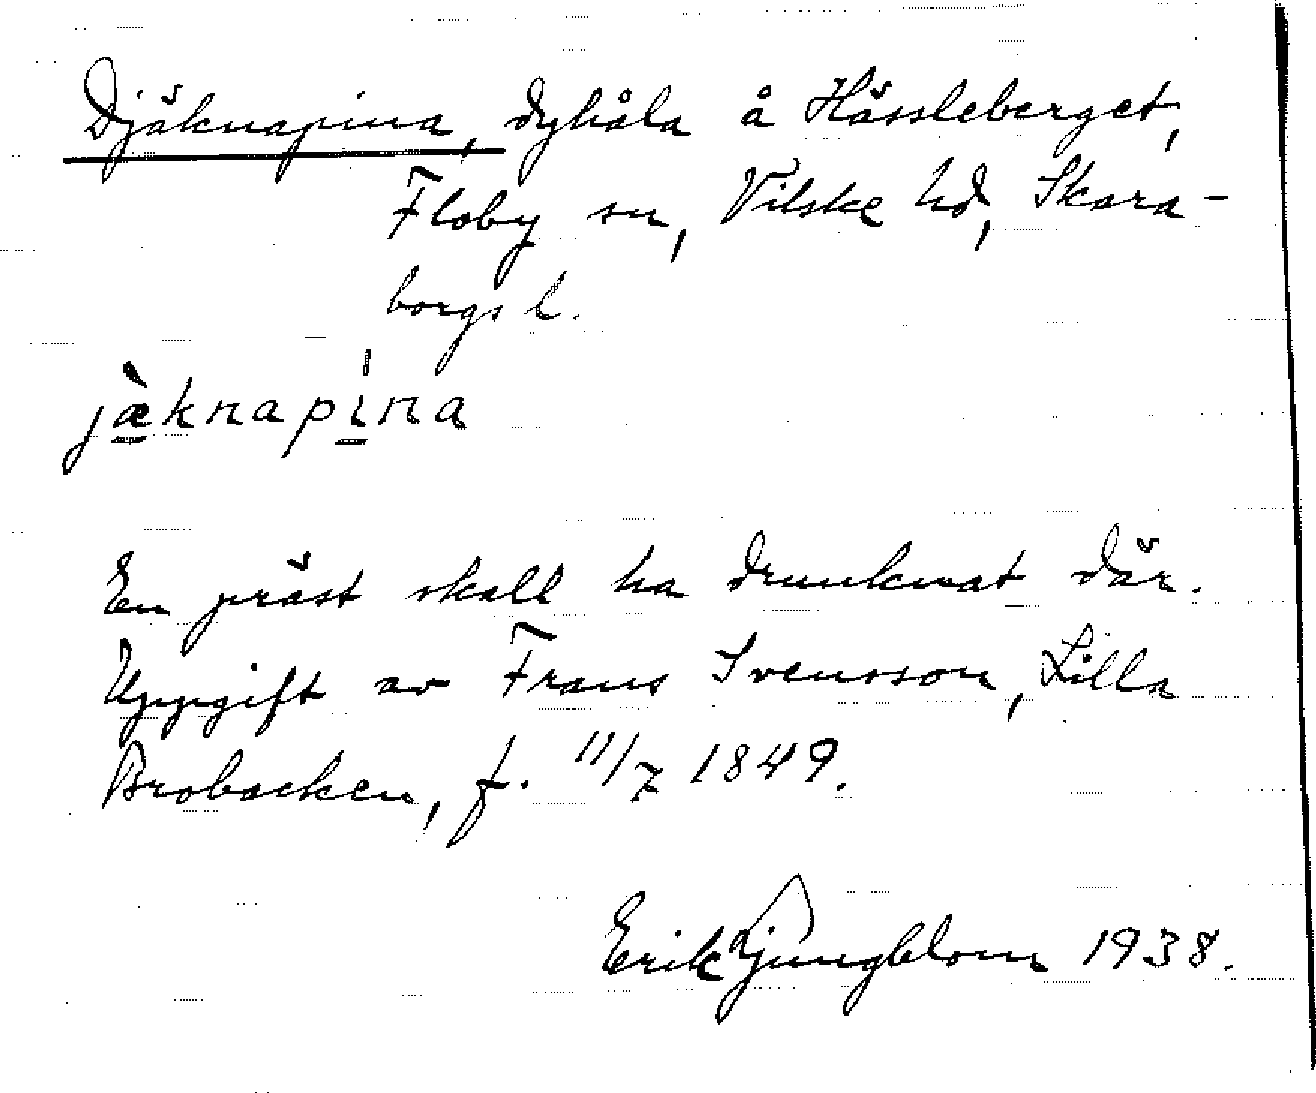 Djäknapina, dyhåla å Hässleberget,
Floby sn, Vilske hd, Skara-
borgs l.
jæ̀knapína
En präst skall ha drunknat där.
Uppgift av Frans Svensson, Lilla
Brobacken, f. 11/7 1849.
Erik Ljungblom 1938.